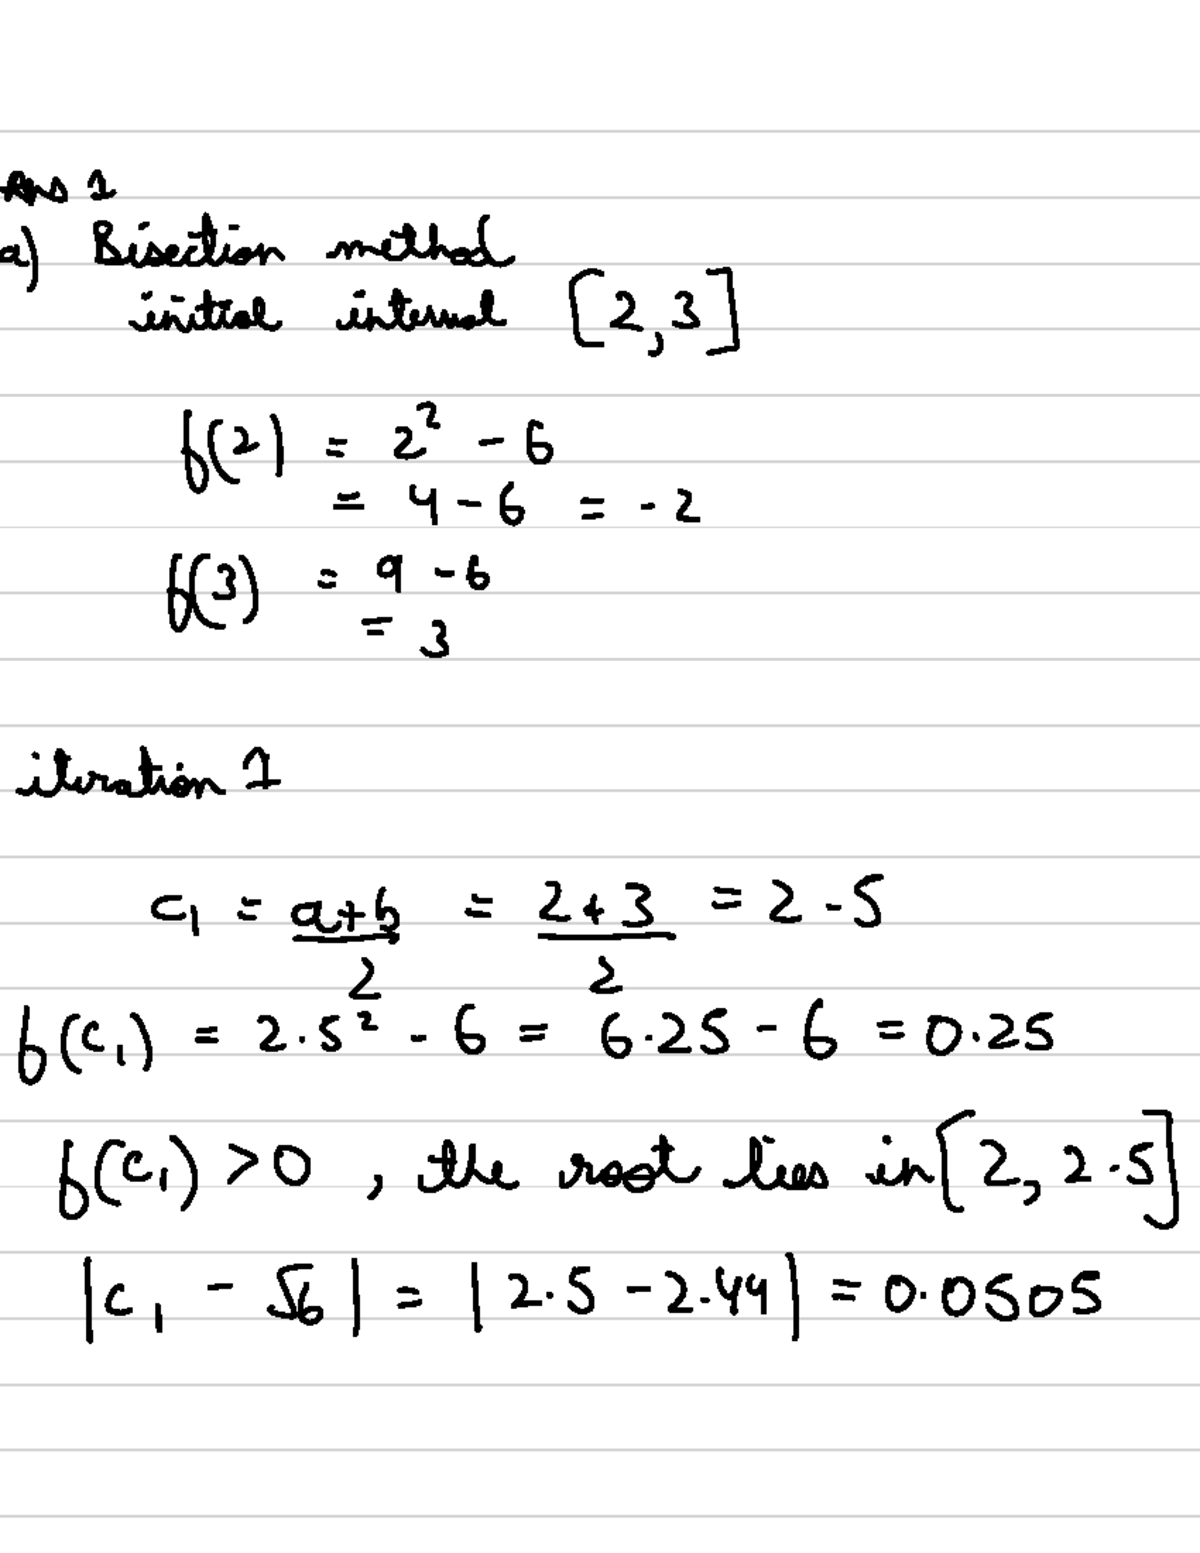 Ans 1
a) Bisection method
initial interval [2,3]
f(2) = 2² - 6
= 4 - 6 = - 2
f(3) = 9 - 6
= 3
iteration 1
c₁ = a+b/2 = 2+3/2 = 2.5
f(c₁) = 2.5² - 6 = 6.25 - 6 = 0.25
f(c₁) > 0 , the root lies in [2, 2.5]
|c₁ - √6| = |2.5 - 2.44| = 0.0505